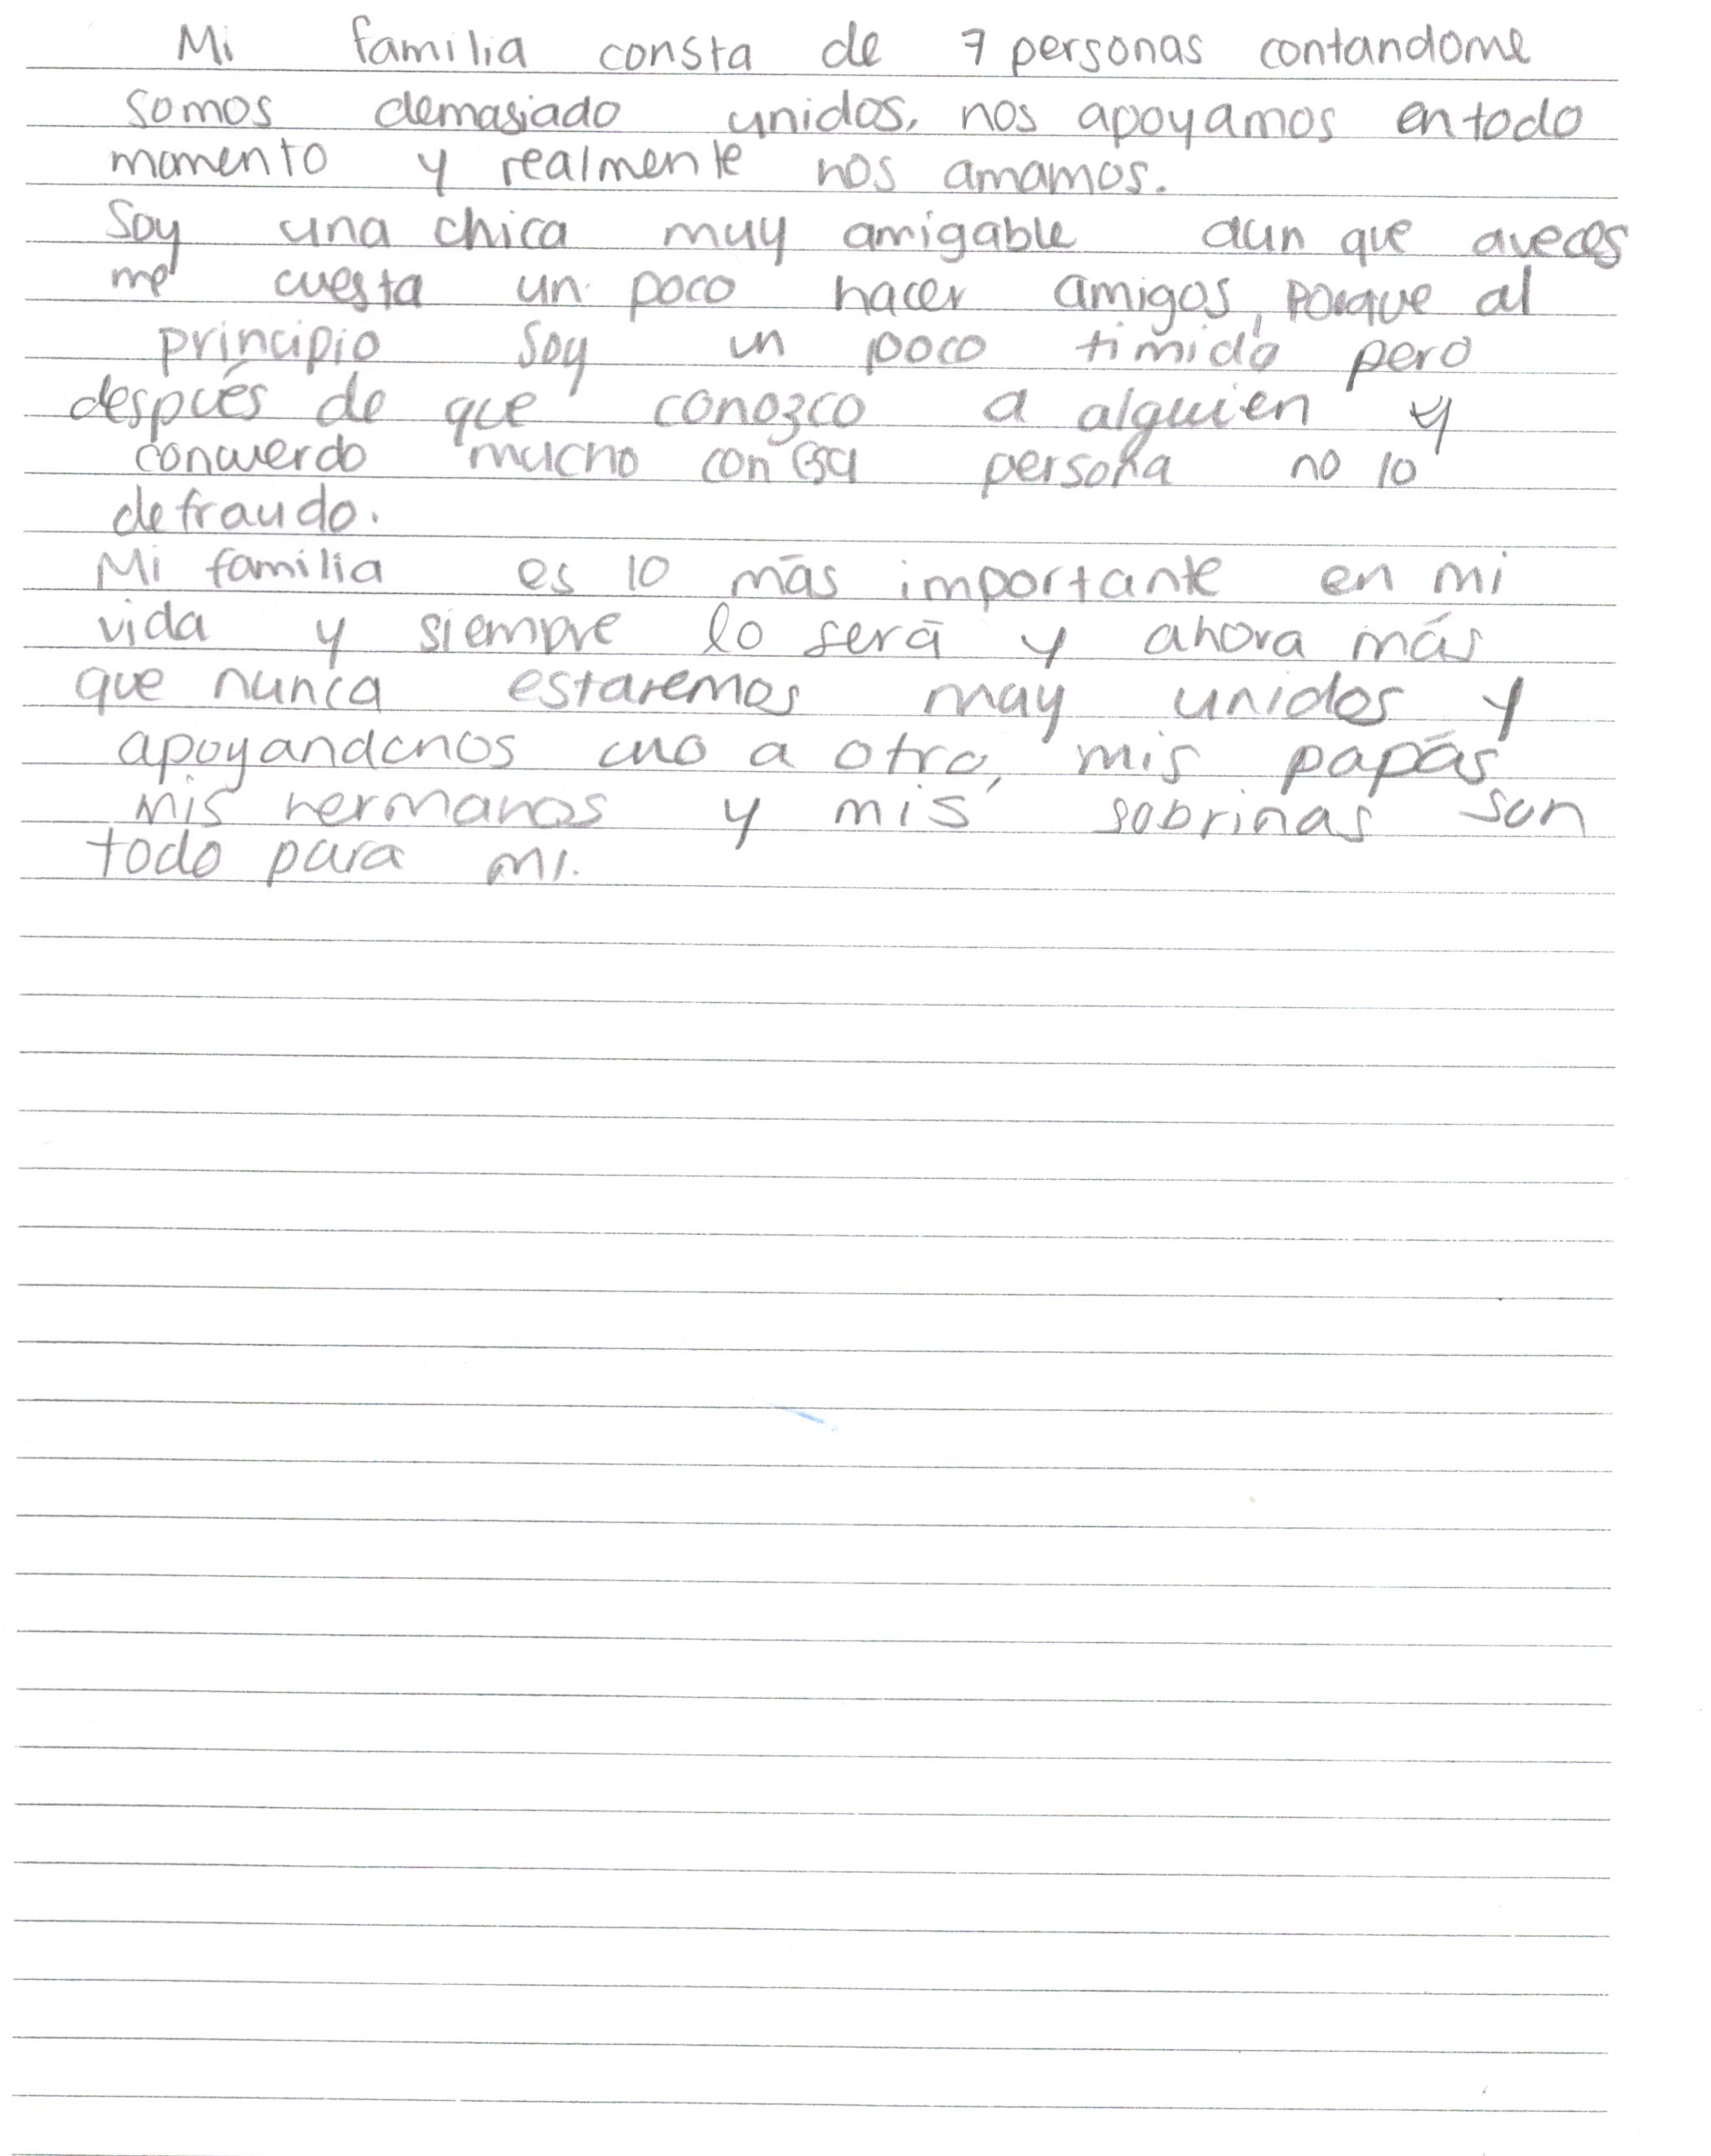 Mi familia consta de 7 personas contandome
somos demasiado unidos, nos apoyamos en todo
momento y realmente nos amamos.
Soy una chica muy amigable aun que aveces
me cuesta un poco hacer amigos, porque al
principio soy un poco timida pero
después de que conozco a alguien y
concuerdo mucho con esa persona no lo
defraudo.
Mi familia es lo más importante en mi
vida y siempre lo será y ahora más
que nunca estaremos muy unidos y
apoyandonos uno a otro, mis papás
mis hermanos y mis sobrinas son
todo para mi.